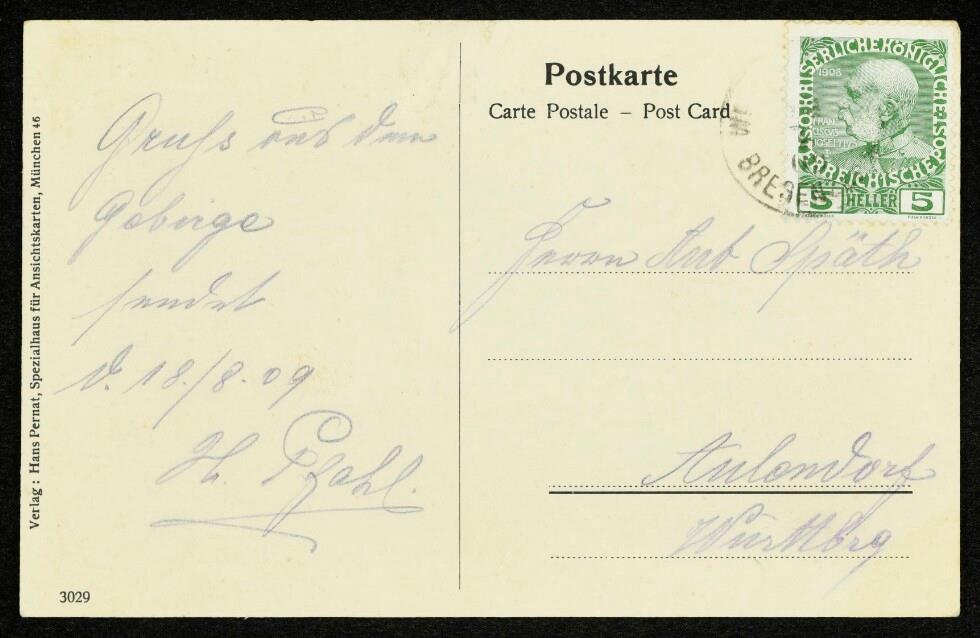 Verlag : Hans Pernat, Spezialhaus für Ansichtskarten, München 46
3029
Gruß aus dem
Gebirge
sendet
d. 18./8. 09
H. Pfahl.
Postkarte
Carte Postale – Post Card
KAISERLICHE KÖNIGLICHE
ÖSTERREICHISCHE POST
1908
FRAN
CISCVS
IOSEFVS I
5 HELLER 5
BREGEN
Herrn Ant Späth
Aulendorf
Württbrg